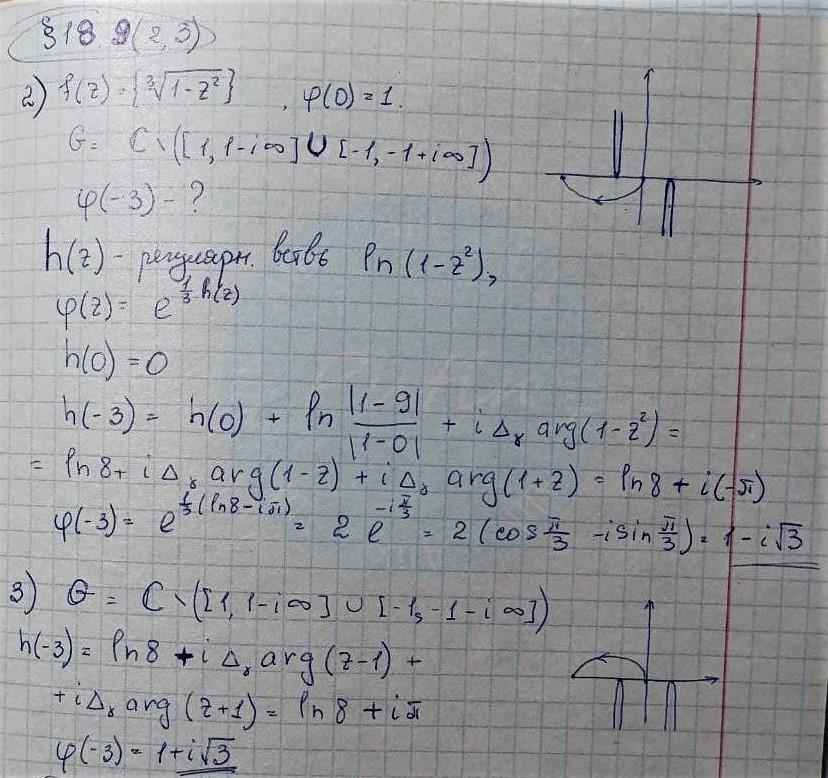 §18 9(2,3)
2) f(z) = {∛(1-z²)}, φ(0)=1.
G = ℂ\([1, 1-i∞] ∪ [-1, -1+i∞])
φ(-3) - ?
h(z) - регулярн. ветвь ln(1-z²),
φ(z) = e^{⅓h(z)}
h(0) = 0
h(-3) = h(0) + ln |1-9|/|1-0| + iΔ_γ arg(1-z²) =
= ln8 + iΔ_γ arg(1-z) + iΔ_γ arg(1+z) = ln8 + i(-π)
φ(-3) = e^{⅓(ln8-iπ)} = 2e^{-iπ/3} = 2(cos π/3 - i sin π/3) = 1-i√3
3) G = ℂ\([1, 1-i∞] ∪ [-1, -1-i∞])
h(-3) = ln8 + iΔ_γ arg(z-1) +
+ iΔ_γ arg(z+1) = ln8 + iπ
φ(-3) = 1+i√3